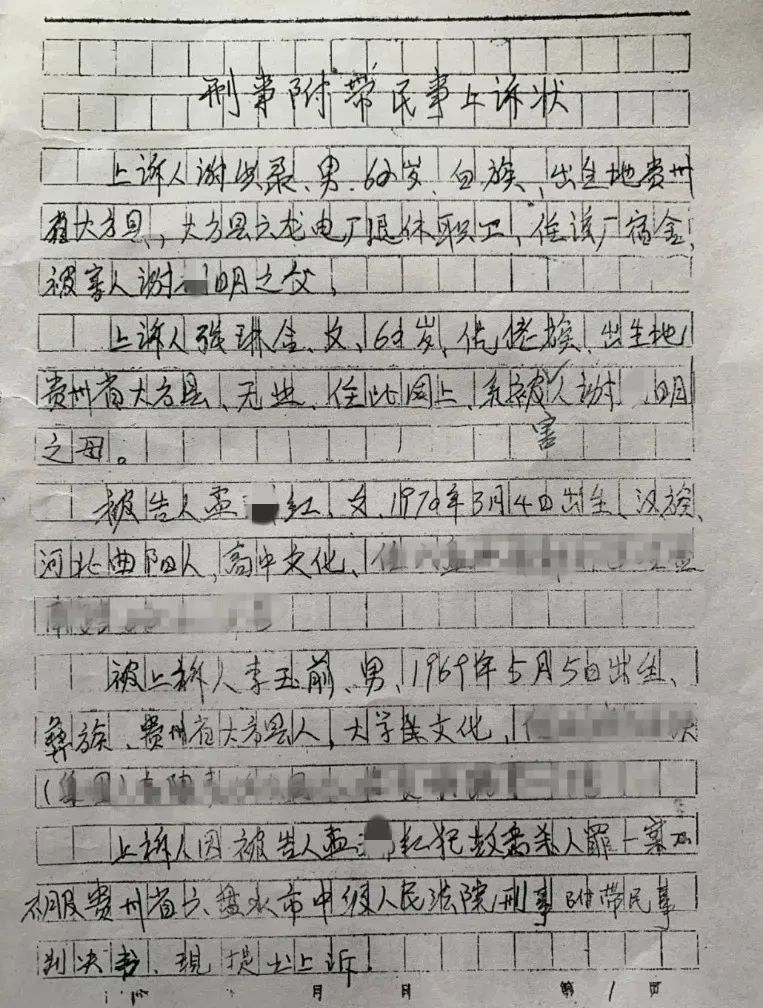 刑事附带民事上诉状
上诉人谢洪录、男、62岁、白族、出生地贵州
省大方县,、大方县六龙电厂退休职工、住该厂宿舍、
被害人谢 明之父,
上诉人张琳仙、女、62岁、仡佬族、出生地
贵州省大方县、无业、住址同上、系被害人谢 明
之母。
被告人孟 红、女、1970年3月4日出生、汉族、
河北曲阳人,高中文化、住
被上诉人李玉前、男、1969年5月5日出生、
彝族、贵州省大方县人,大学生文化,
(集团)
上诉人因被告人孟 红犯故意杀人罪一案不
服贵州省六盘水市中级人民法院刑事附带民事
判决书、现提出上诉!
月 日 第1页